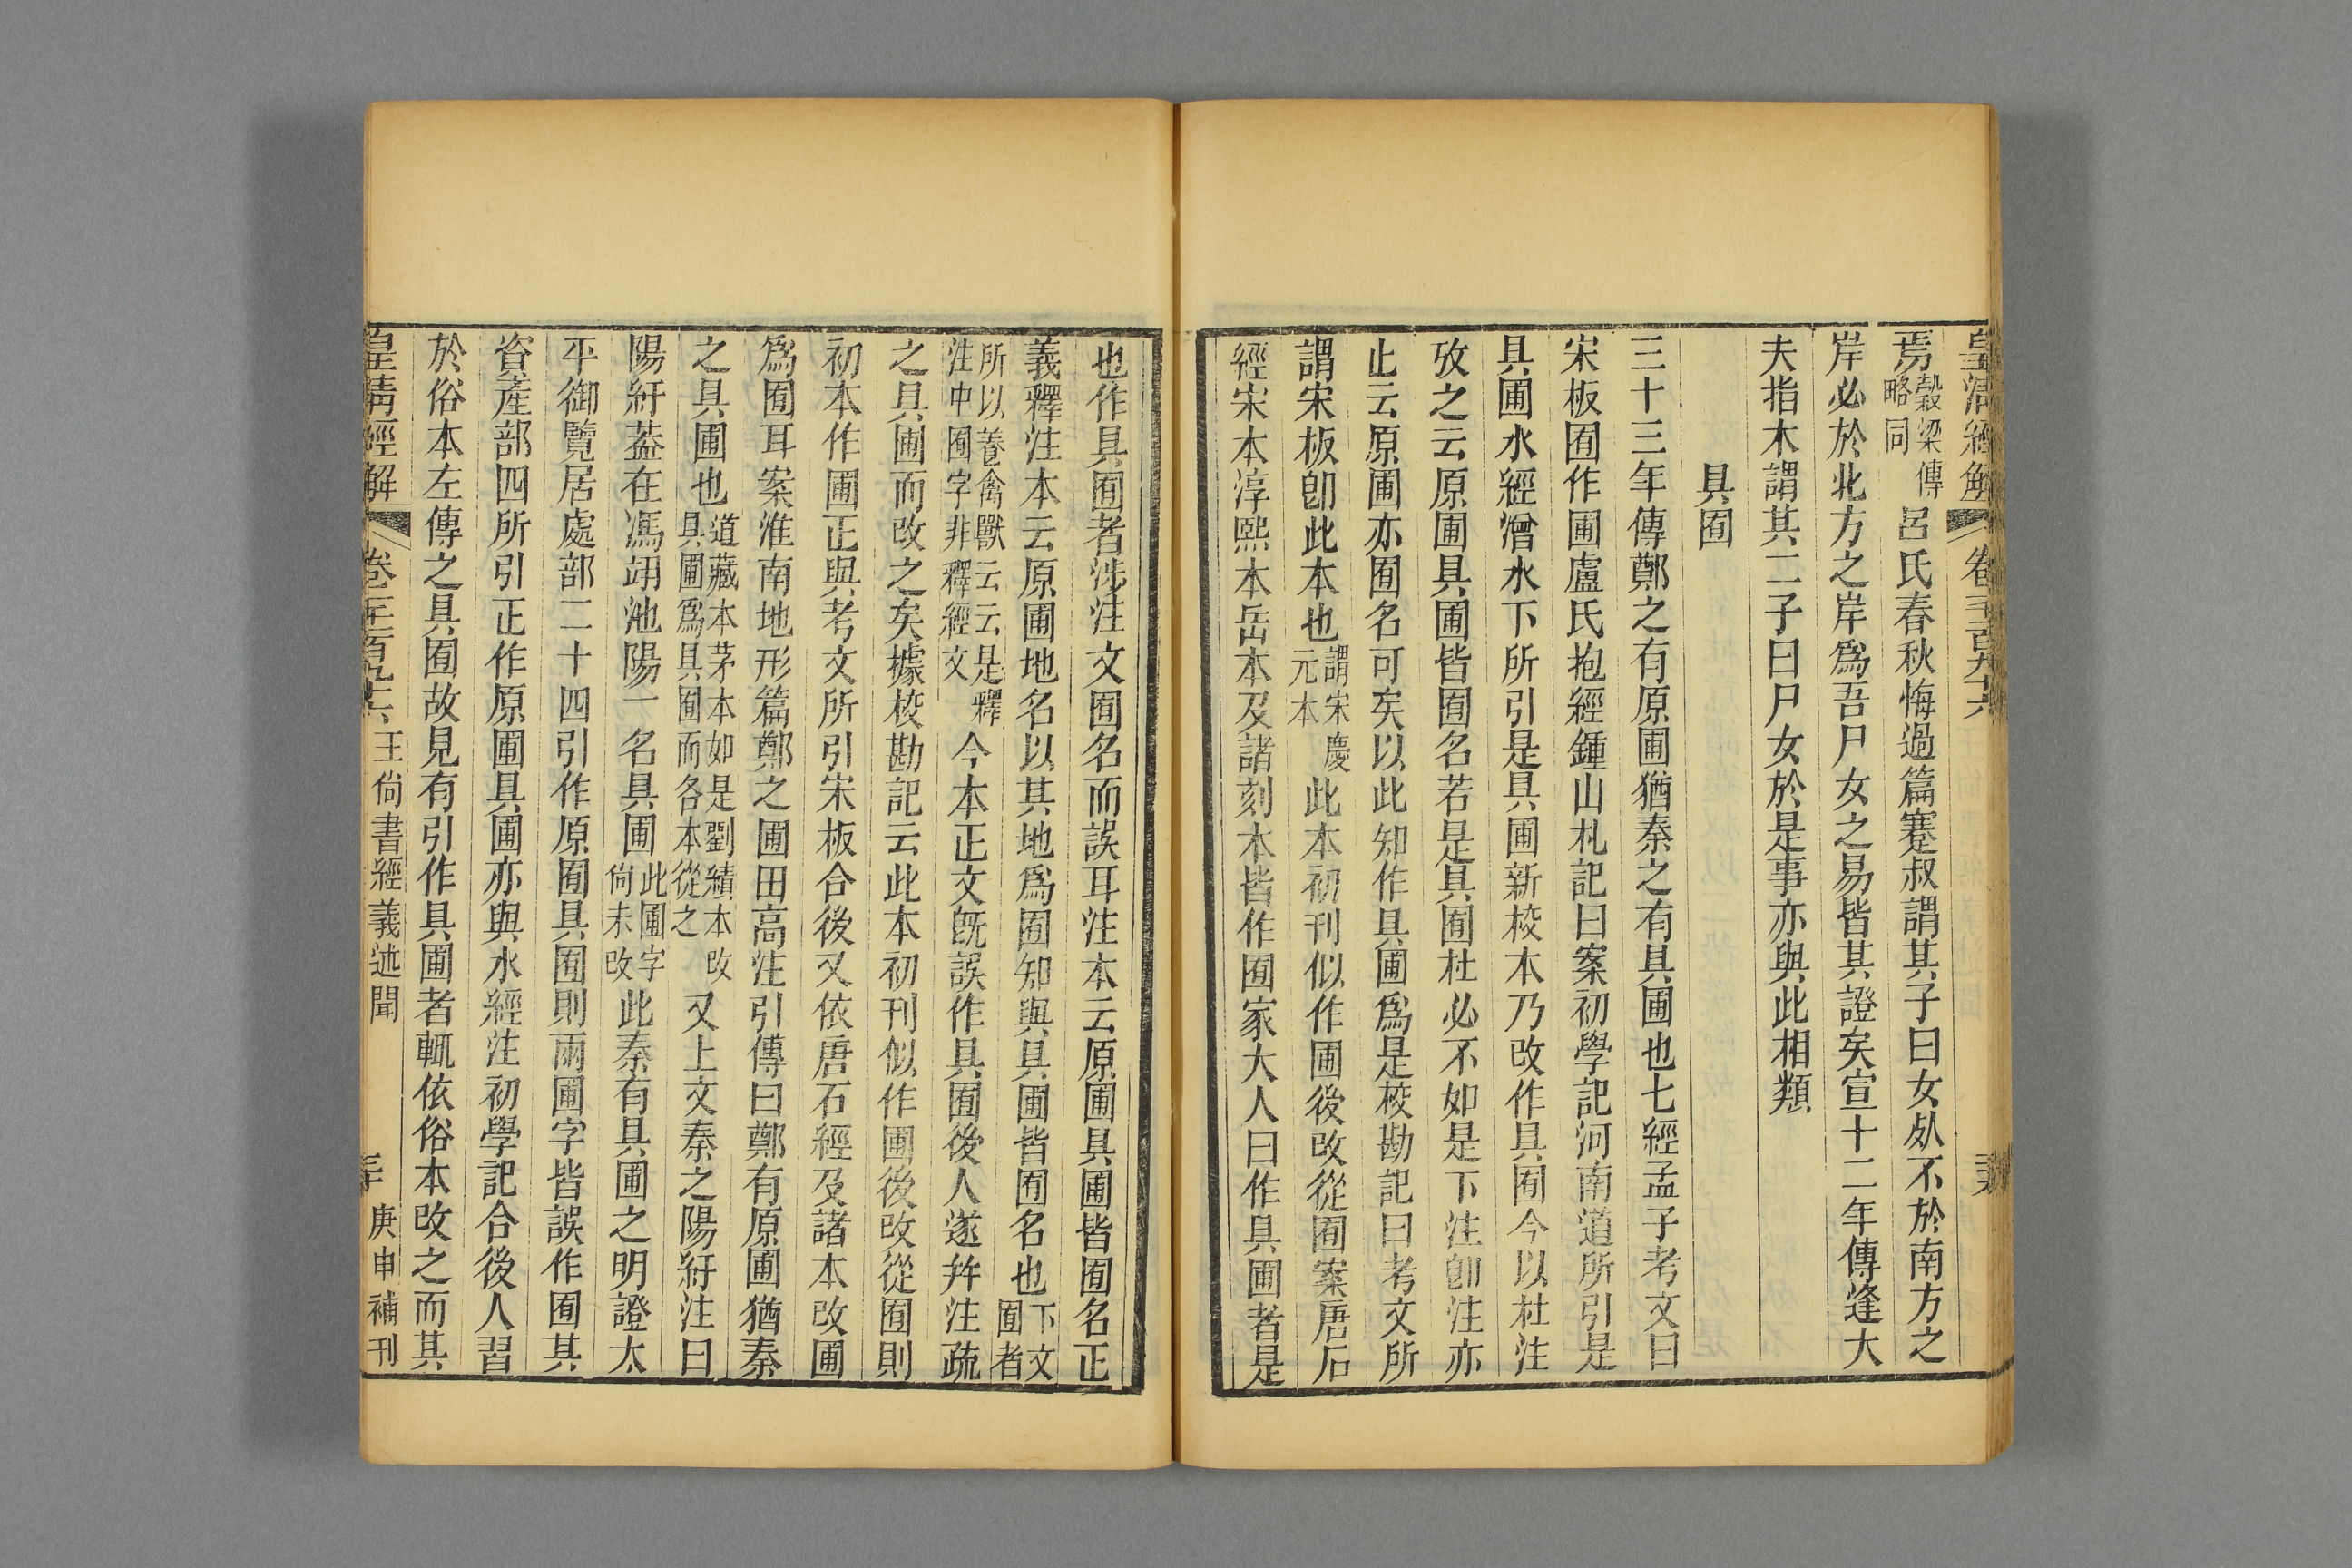 皇清經解 卷千一百九十六
焉穀梁傳略同呂氏春秋悔過篇蹇叔謂其子曰女死不於南方之
岸必於北方之岸爲吾尸女之易皆其證矣宣十二年傳逢大
夫指木謂其二子曰尸女於是事亦與此相類
具囿
三十三年傳鄭之有原圃猶秦之有具圃也七經孟子考文曰
宋板囿作圃盧氏抱經鍾山札記曰案初學記河南道所引是
具圃水經潧水下所引是具圃新校本乃改作具囿今以杜注
攷之云原圃具圃皆囿名若是具囿杜必不如是下注卽注亦
止云原圃亦囿名可矣以此知作具圃爲是校勘記曰考文所
謂宋板卽此本也謂宋慶元本此本初刊似作圃後改從囿案唐石
經宋本淳熙本岳本及諸刻本皆作囿家大人曰作具圃者是
也作具囿者涉注文囿名而誤耳注本云原圃具圃皆囿名正
義釋注本云原圃地名以其地爲囿知與具圃皆囿名也下文囿者
所以養禽獸云云是釋注中囿字非釋經文今本正文旣誤作具囿後人遂幷注疏
之具圃而改之矣據校勘記云此本初刊似作圃後改從囿則
初本作圃正與考文所引宋板合後又依唐石經及諸本改圃
爲囿耳案淮南地形篇鄭之圃田高注引傳曰鄭有原圃猶秦
之具圃也道藏本茅本如是劉績本改具圃爲具囿而各本從之又上文秦之陽紆注曰
陽紆蓋在馮翊池陽一名具圃此圃字尙未改此秦有具圃之明證太
平御覽居處部二十四引作原囿具囿則兩圃字皆誤作囿其
資產部四所引正作原圃具圃亦與水經注初學記合後人習
於俗本左傳之具囿故見有引作具圃者輒依俗本改之而其
皇清經解 卷千一百九十六 王尙書經義述聞 庚申補刊